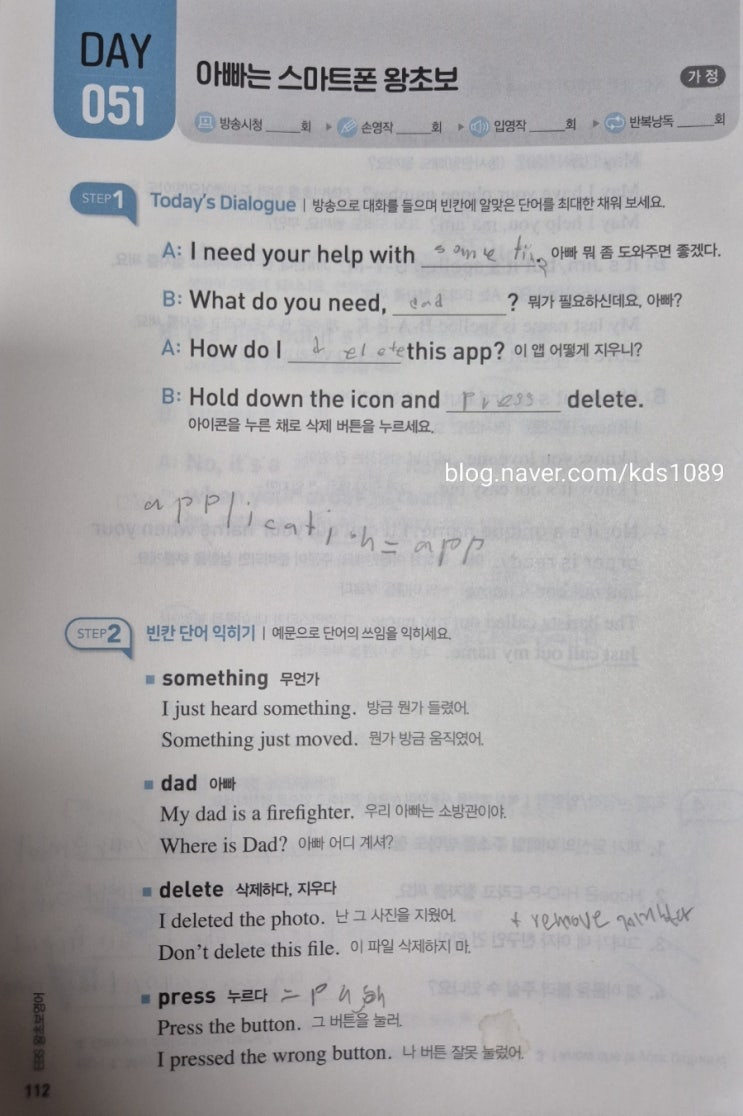 DAY
051
아빠는 스마트폰 왕초보
가정
방송시청 _____회 ▶ 손영작 _____회 ▶ 입영작 _____회 ▶ 반복낭독 _____회
STEP 1 Today's Dialogue | 방송으로 대화를 들으며 빈칸에 알맞은 단어를 최대한 채워 보세요.
A: I need your help with some tin. 아빠 뭐 좀 도와주면 좋겠다.
B: What do you need, dad? 뭐가 필요하신데요, 아빠?
A: How do I delete this app? 이 앱 어떻게 지우니?
B: Hold down the icon and press delete.
아이콘을 누른 채로 삭제 버튼을 누르세요.
blog.naver.com/kds1089
application = app
STEP 2 빈칸 단어 익히기 | 예문으로 단어의 쓰임을 익히세요.
■ something 무언가
I just heard something. 방금 뭔가 들렸어.
Something just moved. 뭔가 방금 움직였어.
■ dad 아빠
My dad is a firefighter. 우리 아빠는 소방관이야.
Where is Dad? 아빠 어디 계셔?
■ delete 삭제하다, 지우다
I deleted the photo. 난 그 사진을 지웠어. + remove
Don't delete this file. 이 파일 삭제하지 마.
■ press 누르다 = push
Press the button. 그 버튼을 눌러.
I pressed the wrong button. 나 버튼 잘못 눌렀어.
EBS 왕초보영어
112